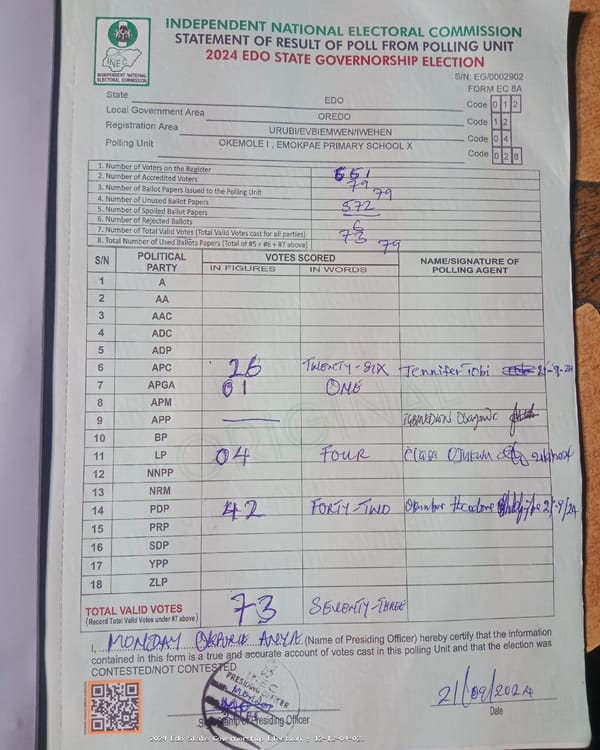 INDEPENDENT NATIONAL ELECTORAL COMMISSION
STATEMENT OF RESULT OF POLL FROM POLLING UNIT
2024 EDO STATE GOVERNORSHIP ELECTION
INEC
INDEPENDENT NATIONAL
ELECTORAL COMMISSION
S/N: EG/0002902
FORM EC 8A
State EDO Code 0 1 2
Local Government Area OREDO Code 1 2
Registration Area URUBI/EVBIEMWEN/IWEHEN Code 0 4
Polling Unit OKEMOLE I , EMOKPAE PRIMARY SCHOOL X Code 0 2 8
1. Number of Voters on the Register 651
2. Number of Accredited Voters 79
3. Number of Ballot Papers Issued to the Polling Unit 79
4. Number of Unused Ballot Papers 572
5. Number of Spoiled Ballot Papers
6. Number of Rejected Ballots 6
7. Number of Total Valid Votes (Total Valid Votes cast for all parties) 73
8. Total Number of Used Ballots Papers (Total of #5 + #6 + #7 above) 79
S/N POLITICAL PARTY VOTES SCORED NAME/SIGNATURE OF POLLING AGENT
IN FIGURES IN WORDS
1 A
2 AA
3 AAC
4 ADC
5 ADP
6 APC 26 TWENTY-SIX Jennifer Tobi 21-9-24
7 APGA 01 ONE
8 APM
9 APP
10 BP
11 LP 04 FOUR
12 NNPP
13 NRM
14 PDP 42 FORTY-TWO 21/9/24
15 PRP
16 SDP
17 YPP
18 ZLP
TOTAL VALID VOTES 73 SEVENTY-THREE
(Record Total Valid Votes under #7 above)
I, MONDAY OKARIE ANYA (Name of Presiding Officer) hereby certify that the information
contained in this form is a true and accurate account of votes cast in this polling Unit and that the election was
CONTESTED/NOT CONTESTED
PRESIDING OFFICER
21/09/2024
Presiding Officer
Date
2024 Edo State Governorship Election : 12-12-04-028